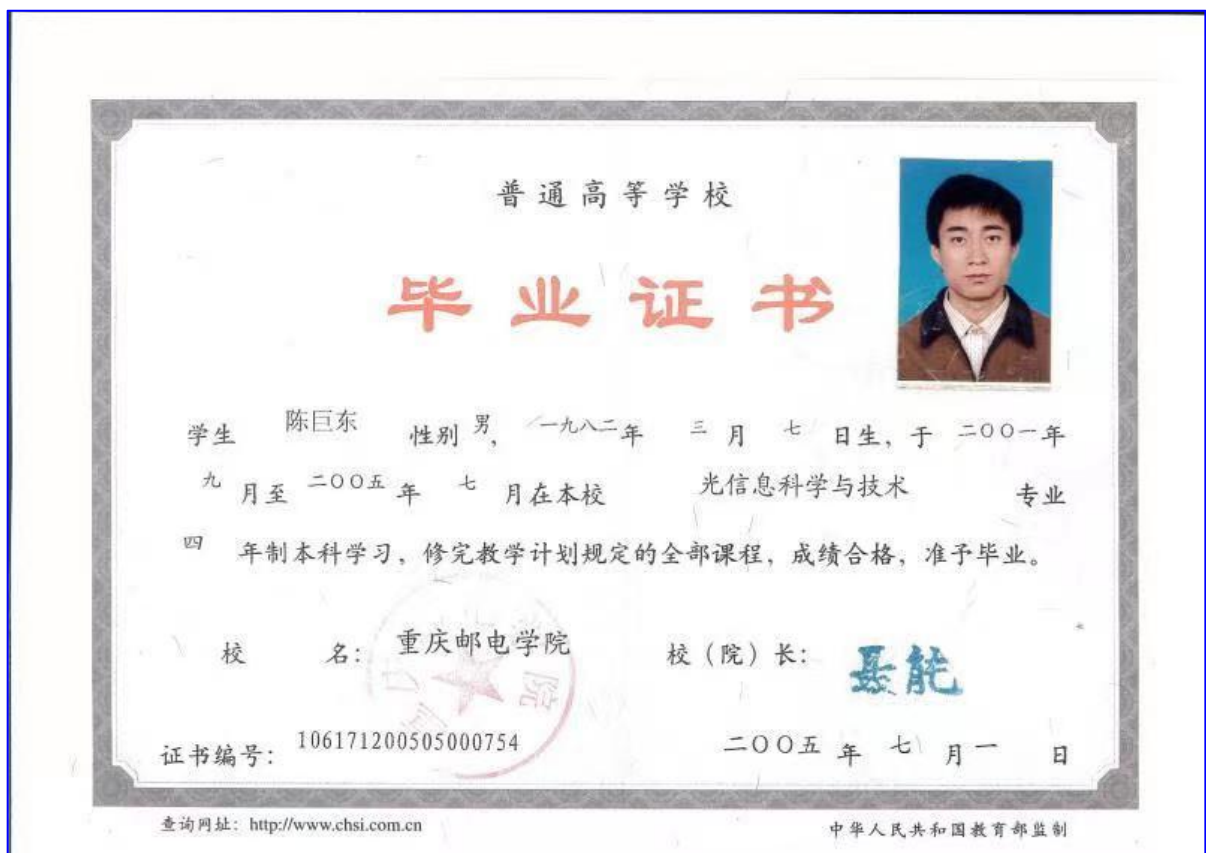 普通高等学校
毕业证书
学生 陈巨东 性别 男, 一九八二年 三月 七 日生，于 二〇〇一年
九 月至 二〇〇五 年 七 月在本校 光信息科学与技术 专业
四 年制本科学习，修完教学计划规定的全部课程，成绩合格，准予毕业。
校 名： 重庆邮电学院 校（院）长： 聂能
证书编号： 106171200505000754 二〇〇五 年 七 月 一 日
查询网址：http://www.chsi.com.cn 中华人民共和国教育部监制